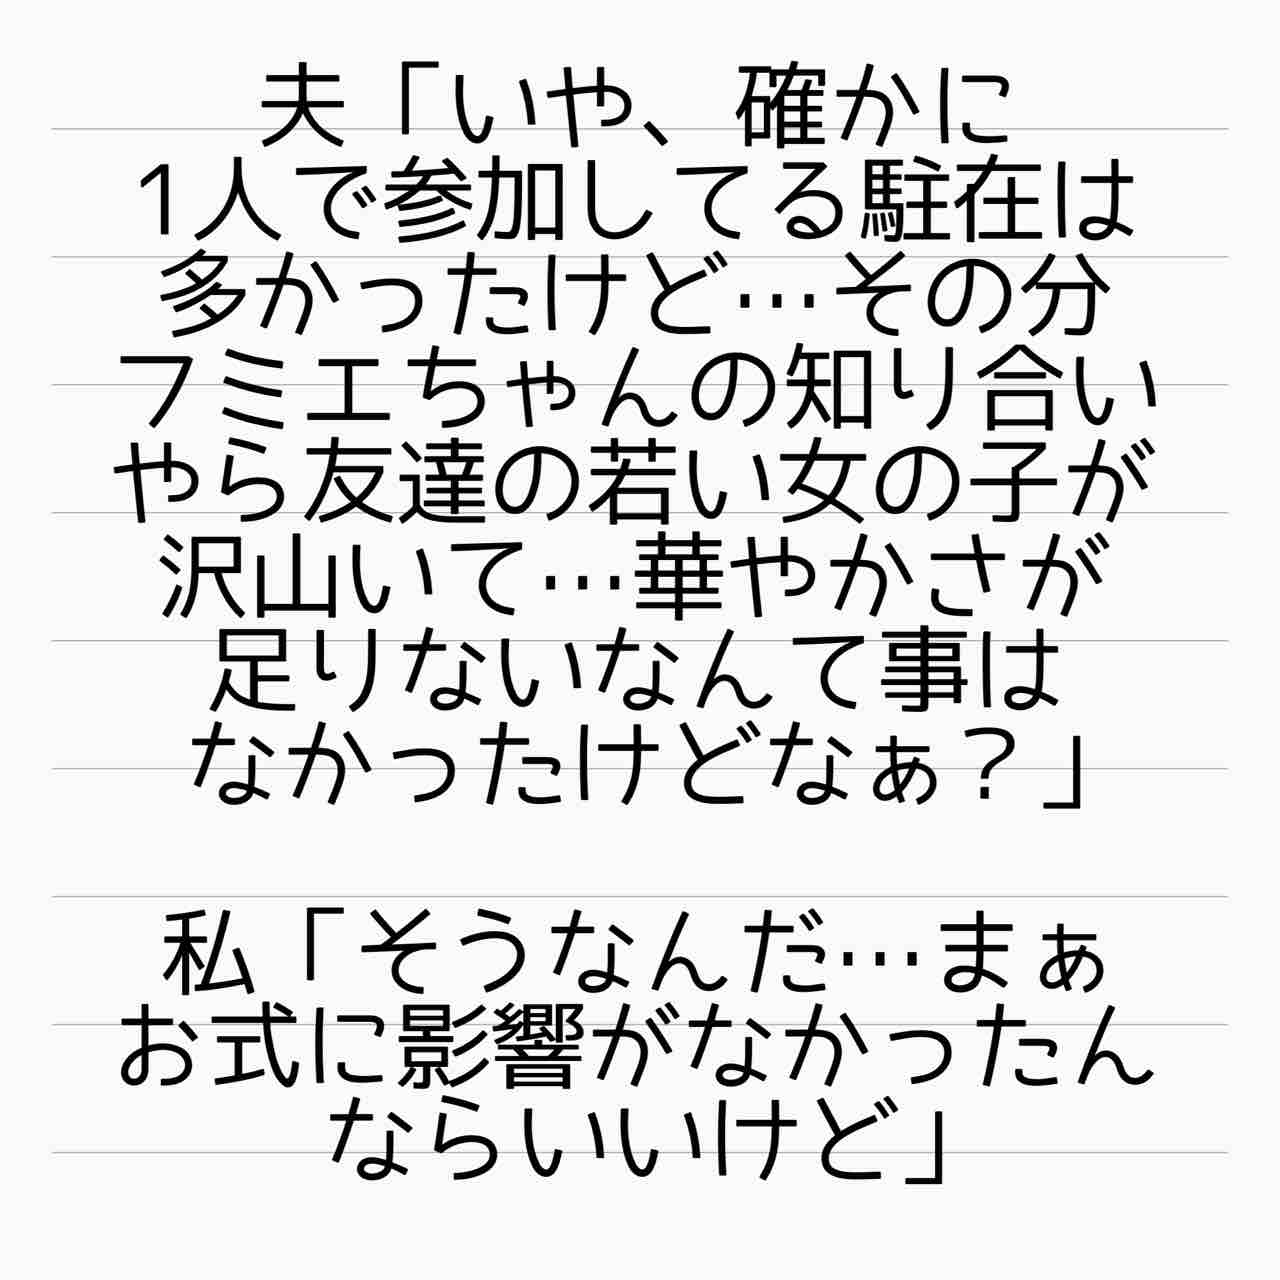 夫「いや、確かに
1人で参加してる駐在は
多かったけど…その分
フミエちゃんの知り合い
やら友達の若い女の子が
沢山いて…華やかさが
足りないなんて事は
なかったけどなぁ？」
私「そうなんだ…まぁ
お式に影響がなかったん
ならいいけど」